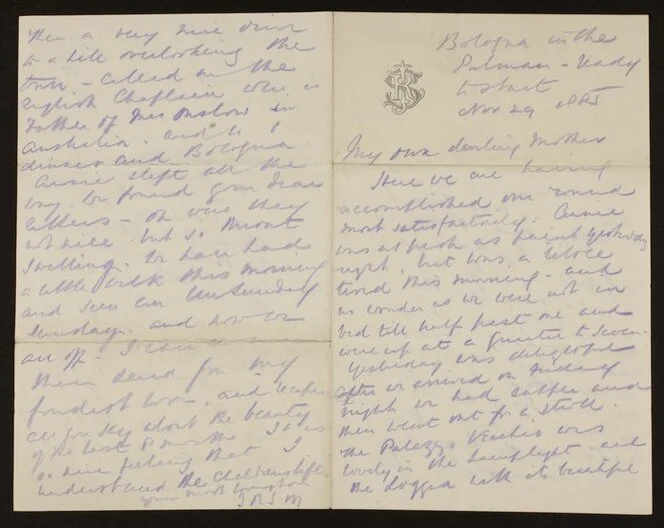 Bologna in the
Pulman - ready
to start
Nov 29 1885
My own darling Mother
Here we are having
accomplished our round
most satisfactorily. Annie
was as fresh as paint yesterday
night, but was a little
tired this morning - and
no wonder as we were not in
bed till half past one and
were up at a quarter to seven.
Yesterday was delightful
after we arrived on Friday
night we had supper and
then went out for a stroll.
The Palazzo Vecchio was
lovely in the lamplight - and
the loggia with its beautiful
Then a very nice drive
to a hill overlooking the
town - called on the
English Chaplain who is
Father of Mrs Onslow in
Australia. and to
dinner and Bologna
Annie slept all the
way. We found your dear
letters - oh were they
not nice but so
We have had
a little walk this morning
and seen an
Sunday. and now we
are off.
them send you my
fondest love, and
all you say about the beauty
of the last 8 months. It is
so nice feeling that I
understand the
your most loving son